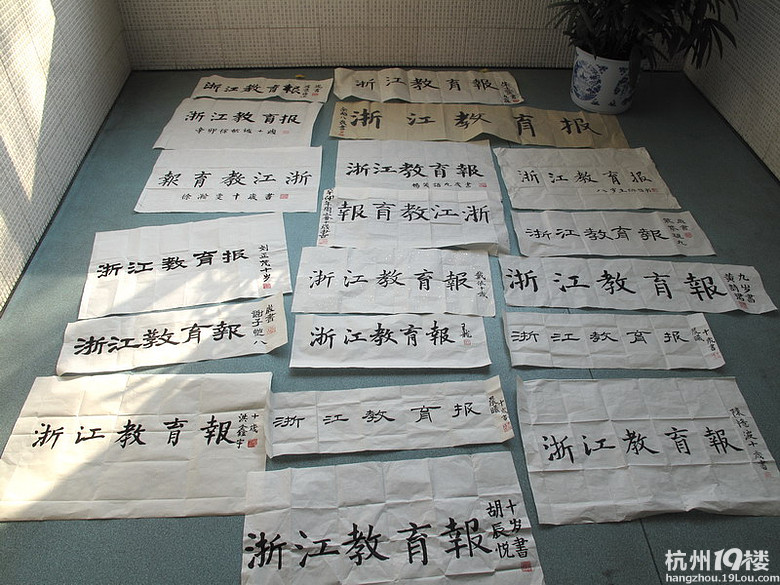 浙江教育報
浙江教育報
浙江教育报
浙江教育报
報育教江浙
十歲書
浙江教育報
九歲書
浙江教育报
報育教江浙
浙江教育報
浙江教育报
十岁
浙江教育報
浙江教育報
九岁書
浙江教育報
浙江教育報
浙江教育报
浙江教育報
十歲
洪鑫宇
浙江教育报
浙江教育報
十歲書
浙江教育報
十岁書
胡辰悦
杭州19楼
hangzhou.19Lou.com